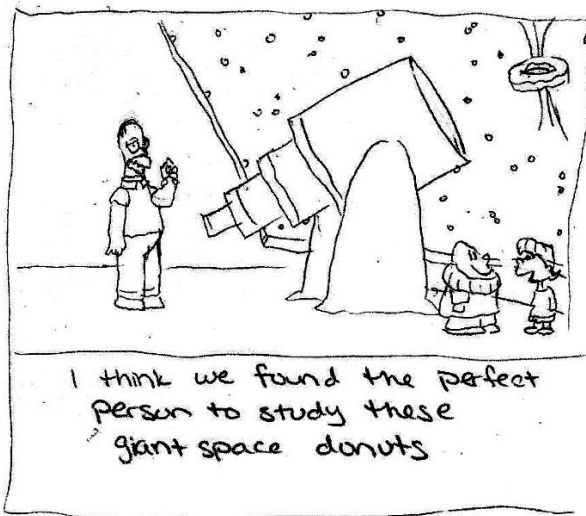 I think we found the perfect
person to study these
giant space donuts